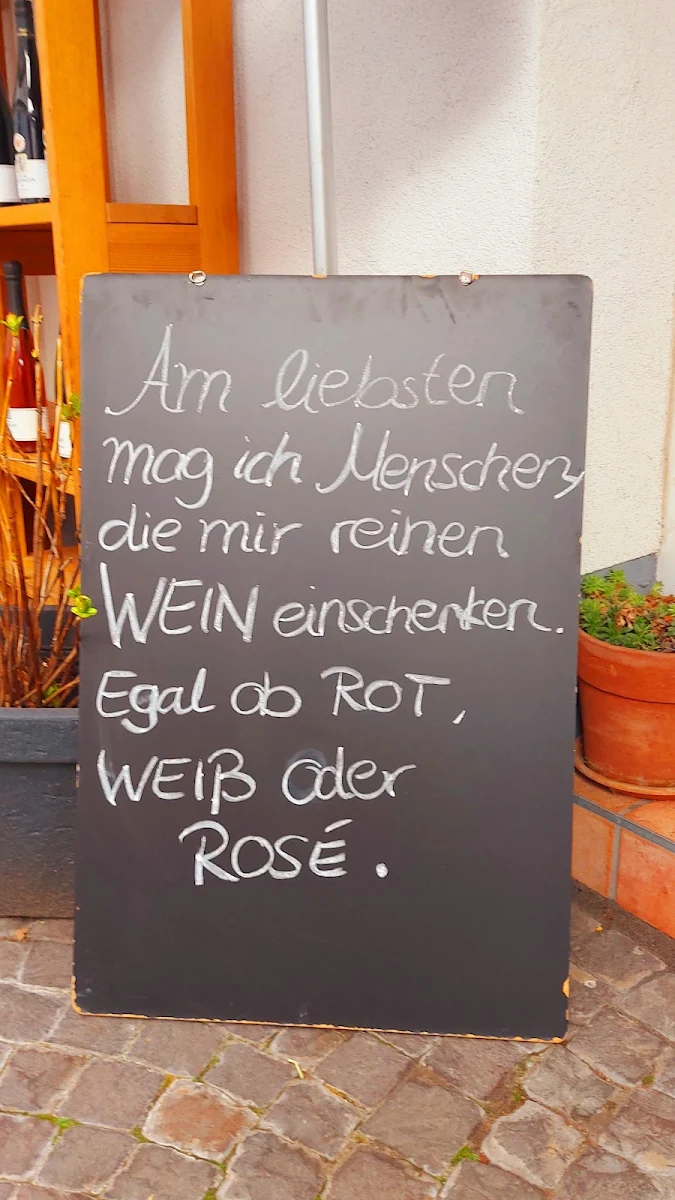 Am liebsten
mag ich Menschen,
die mir reinen
WEIN einschenken.
Egal ob ROT,
WEIß oder
ROSÉ.